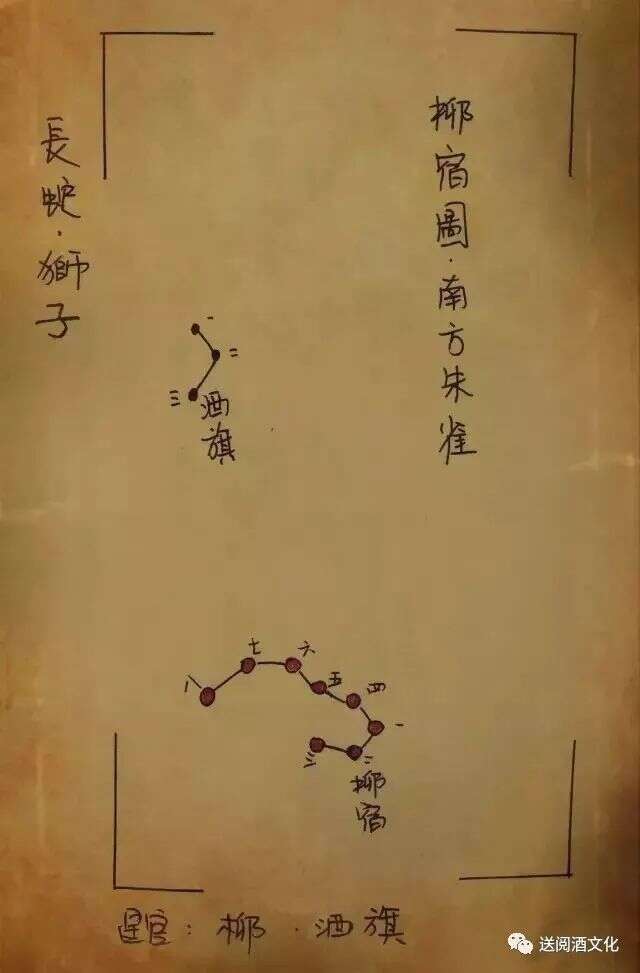 柳宿圖·南方朱雀
長蛇·獅子
一
二
三
酒旗
七
六
八
五
四
一
二
三
柳宿
星官：柳·酒旗
送阅酒文化